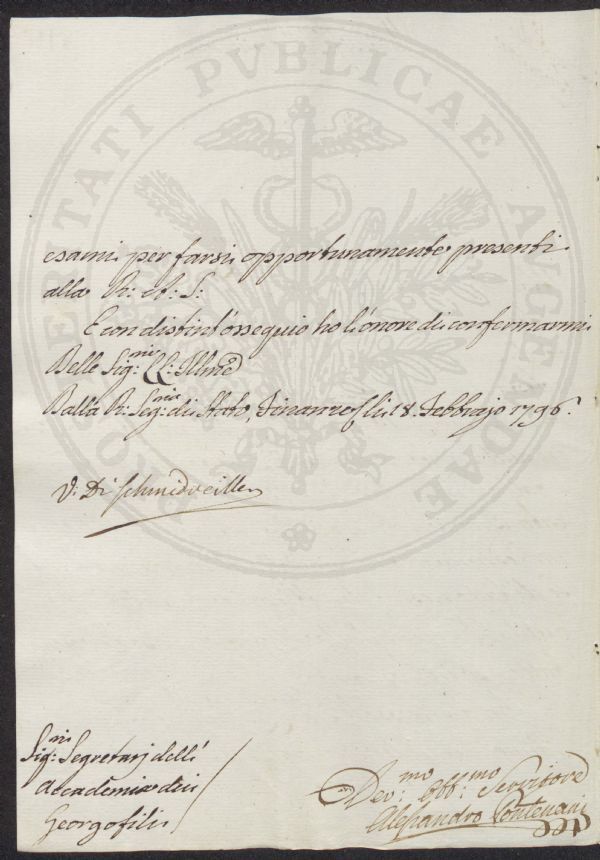 PROSPERITATI PVBLICAE AVGENDAE
esami per farsi opportunamente presenti
alla R: A: S:
E con distint'ossequio ho l'onore di confermarmi
Delle Sig:rie LL: Ill:me
Dalla R: Seg:ria di Stato, Finanze li 18. Febbrajo 1796.
V: Di Schmidveiller
Sig:ri Segretarj dell'
Accademia dei
Georgofili
Dev:mo Obb:mo Servitore
Alessandro Pontenani